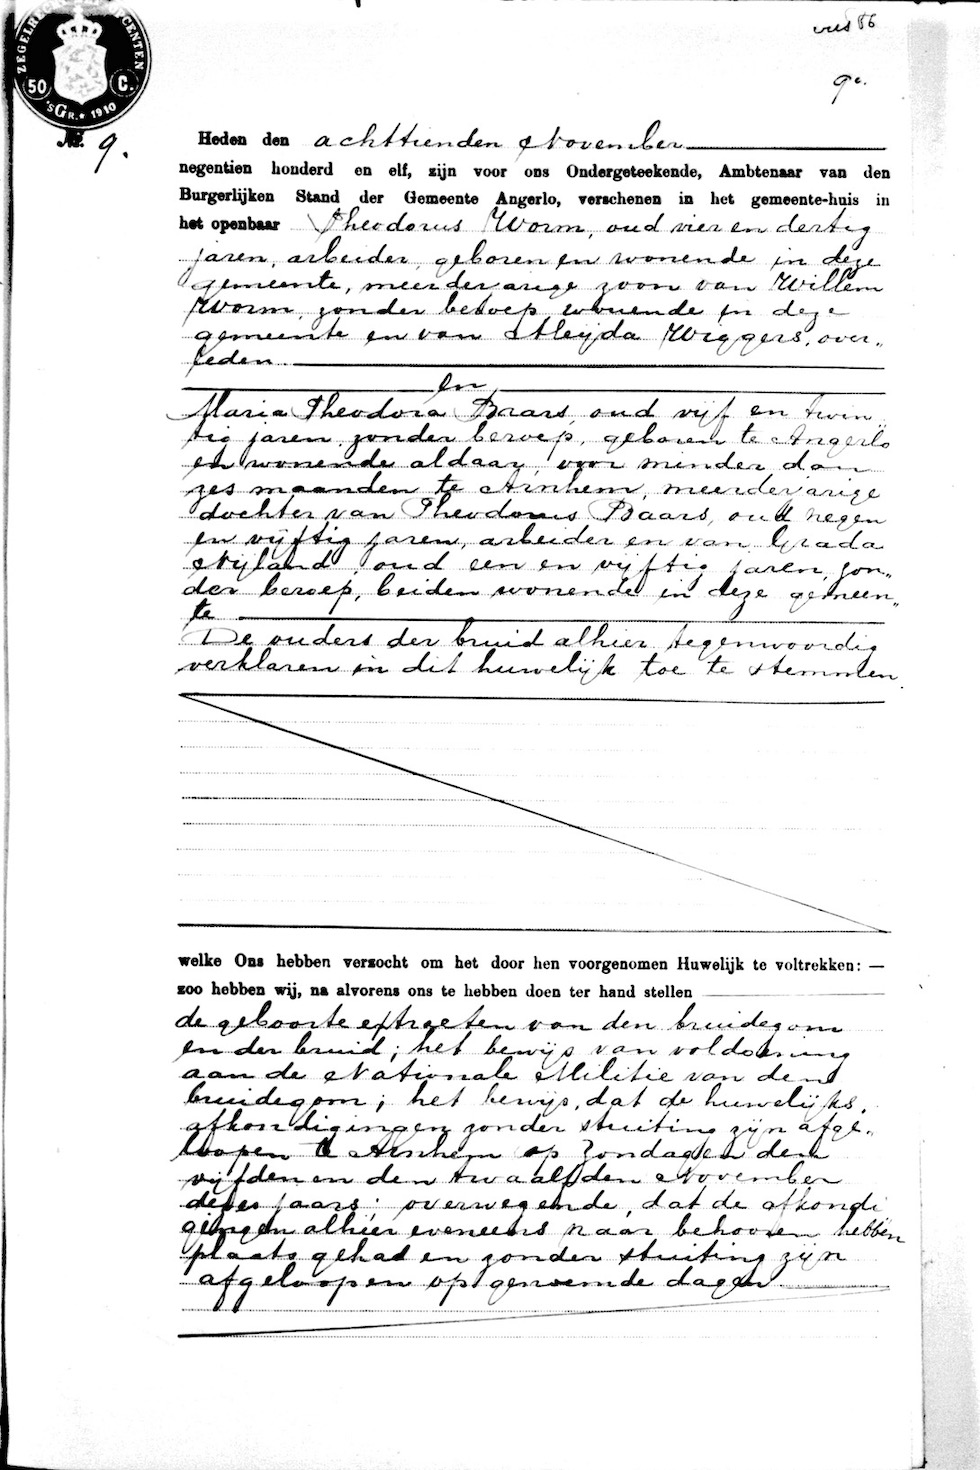 ZEGELRECHT CENTEN
50 C.
'sGR. 1910
vies 86
9e.
No. 9.
Heden den achttienden November
negentien honderd en elf, zijn voor ons Ondergeteekende, Ambtenaar van den
Burgerlijken Stand der Gemeente Angerlo, verschenen in het gemeente-huis in
het openbaar Theodorus Worm, oud vier en dertig
jaren, arbeider, geboren en wonende in deze
gemeente, meerderjarige zoon van Willem
Worm, zonder beroep, wonende in deze
gemeente en van Aleijda Wiggers, over„
leden
en
Maria Theodora Baars, oud vijf en twin„
tig jaren, zonder beroep, geboren te Angerlo
en wonende aldaar, voor minder dan
zes maanden te Arnhem, meerderjarige
dochter van Theodorus Baars, oud negen
en vijftig jaren, arbeider en van Grada
Nijland, oud een en vijftig jaren, zon„
der beroep, beiden wonende in deze gemeen„
te
De ouders der bruid alhier tegenwoordig
verklaren in dit huwelijk toe te stemmen.
welke Ons hebben verzocht om het door hen voorgenomen Huwelijk te voltrekken: —
zoo hebben wij, na alvorens ons te hebben doen ter hand stellen
de geboorte extracten van den bruidegom
en der bruid; het bewijs van voldoening
aan de Nationale Militie van den
bruidegom; het bewijs, dat de huwelijks„
afkondigingen zonder stuiting zijn afge„
loopen te Arnhem op Zondagen den
vijfden en den twaalfden November
dezes jaars; overwegende, dat de afkondi
gingen alhier eveneens naar behooren hebben
plaats gehad en zonder stuiting zijn
afgeloopen op genoemde dagen